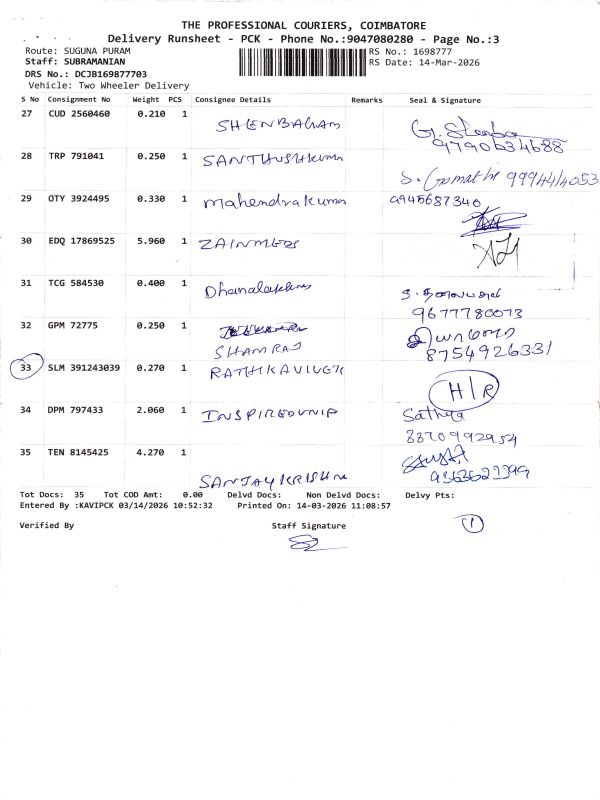 THE PROFESSIONAL COURIERS, COIMBATORE
Delivery Runsheet - PCK - Phone No.:9047080280 - Page No.:3
Route: SUGUNA PURAM RS No.: 1698777
Staff: SUBRAMANIAN RS Date: 14-Mar-2026
DRS No.: DCJB169877703
Vehicle: Two Wheeler Delivery
S No Consignment No Weight PCS Consignee Details Remarks Seal & Signature
27 CUD 2560460 0.210 1 SHENBAGAM
9790634688
28 TRP 791041 0.250 1 SANTHUSHKUMA
S. Gomathi 9994414053
29 OTY 3924495 0.330 1 Mahendrakumar 9945687340
30 EDQ 17869525 5.960 1 ZAINMEDS
31 TCG 584530 0.400 1 Dhanalakshmi
9677780073
32 GPM 72775 0.250 1
SHAMRAJ 8754926331
33 SLM 391243039 0.270 1 RATHIKAVIVEK H/R
34 DPM 797433 2.060 1 INSPIREDUNIP Sathya
8870992954
35 TEN 8145425 4.270 1
SANJAYKRISHNA
Tot Docs: 35 Tot COD Amt: 0.00 Delvd Docs: Non Delvd Docs: Delvy Pts:
Entered By :KAVIPCK 03/14/2026 10:52:32 Printed On: 14-03-2026 11:08:57
Verified By Staff Signature 1